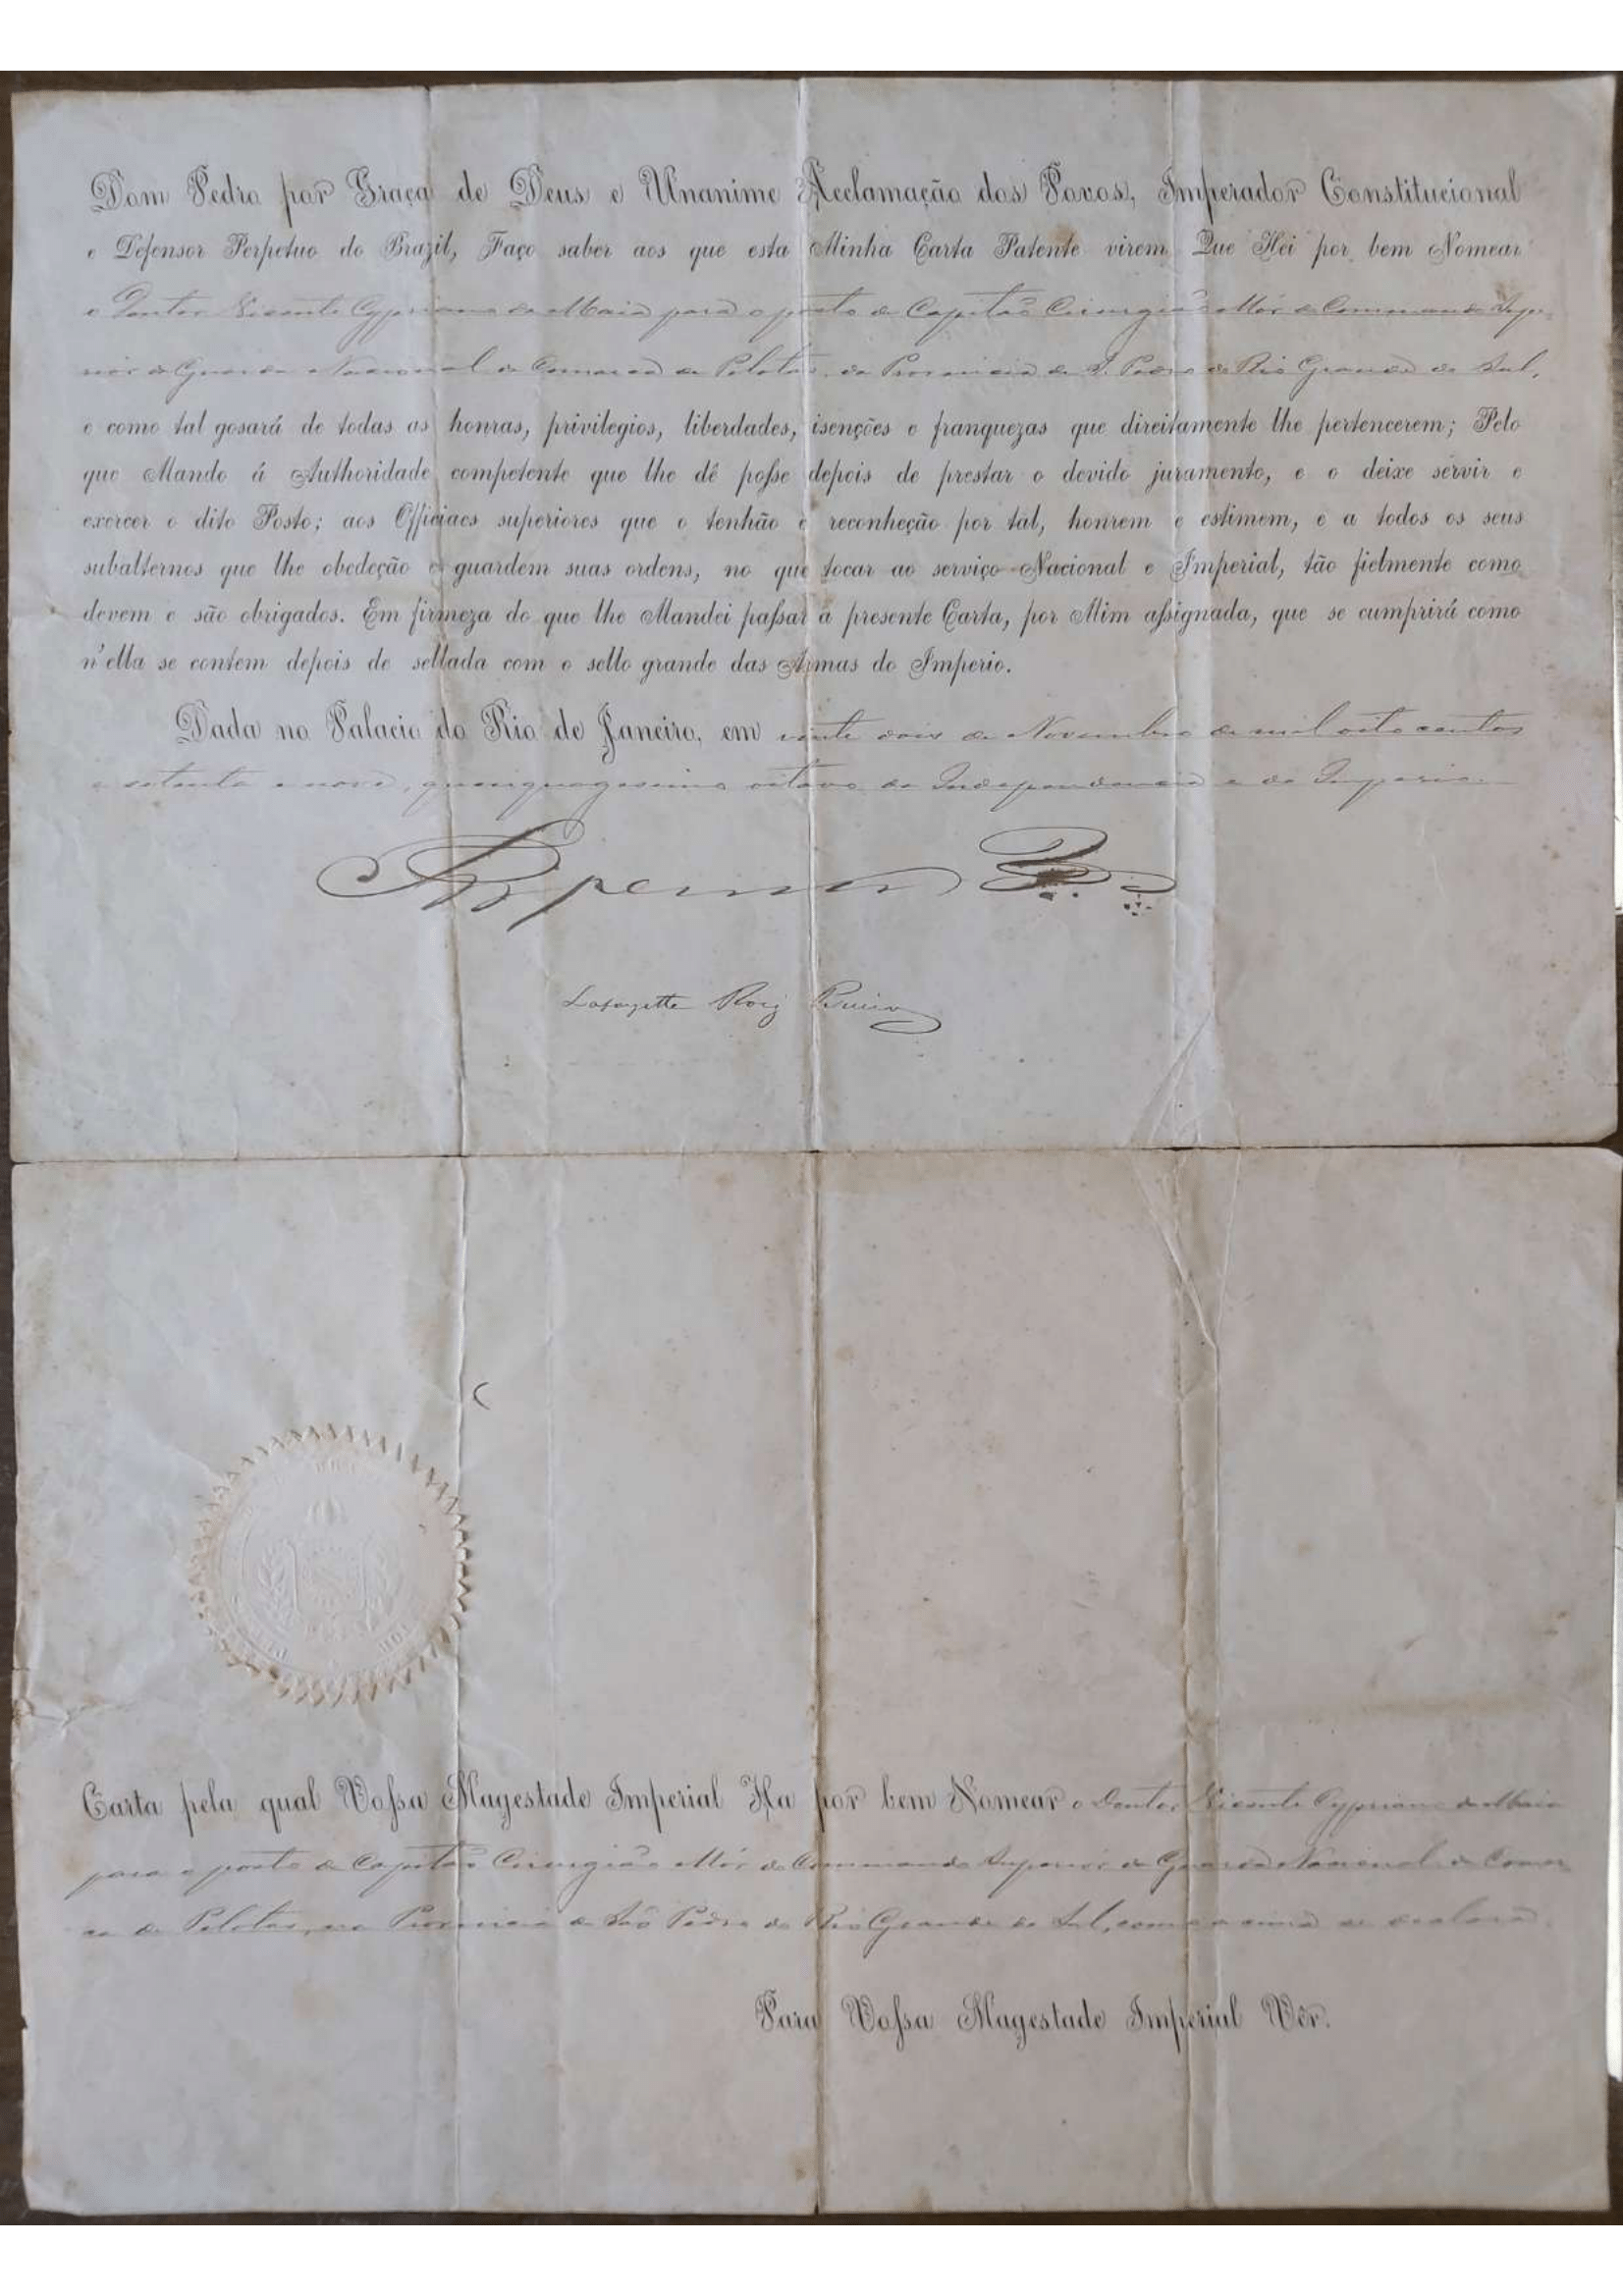 Dom Pedro por Graça de Deus e Unanime Acclamação dos Povos, Imperador Constitucional
e Defensor Perpetuo do Brazil, Faço saber aos que esta Minha Carta Patente virem Que Hei por bem Nomear
o Doutor Vicente Cypriano da Maia para o posto de Capitão Cirurgião Mór do Commando Supe-
rior da Guarda Nacional da Comarca de Pelotas, da Provincia de S. Pedro do Rio Grande do Sul,
e como tal gosará de todas as honras, privilegios, liberdades, isenções e franquezas que direitamente lhe pertencerem; Pelo
que Mando á Authoridade competente que lhe dê posse depois de prestar o devido juramento, e o deixe servir e
exercer o dito Posto; aos Officiaes superiores que o tenhão e reconheção por tal, honrem e estimem, e a todos os seus
subalternos que lhe obedeção e guardem suas ordens, no que tocar ao serviço Nacional e Imperial, tão fielmente como
devem e são obrigados. Em firmeza do que lhe Mandei passar a presente Carta, por Mim assignada, que se cumprirá como
n'ella se contem depois de sellada com o sello grande das Armas do Imperio.
Dada no Palacio do Rio de Janeiro, em vinte dois de Novembro de mil oito centos
e setenta e nove, quinquagesimo oitavo da Independencia e do Imperio.
Imperador
Lafayette Roiz Pereira
Carta pela qual Vossa Magestade Imperial Ha por bem Nomear o Doutor Vicente Cypriano da Maia
para o posto de Capitão Cirurgião Mór do Commando Superior da Guarda Nacional da Comar
ca de Pelotas, na Provincia de São Pedro do Rio Grande do Sul, como acima se declara.
Para Vossa Magestade Imperial Vêr.